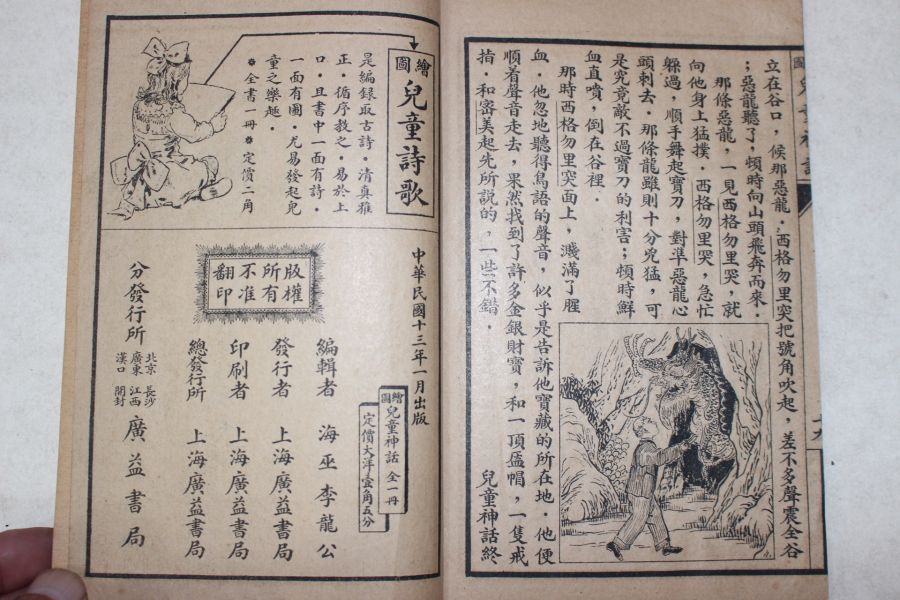 立在谷口，候那惡龍．西格勿里突把號角吹起，差不多聲震全谷
；惡龍聽了，頓時向山頭飛奔而來．
那條惡龍，一見西格勿里哭，就
向他身上猛撲．西格勿里哭，急忙
躱過，順手舞起寶刀，對準惡龍心
頭刺去．那條龍雖則十分兇猛，可
是究竟敵不過寶刀的利害；頓時鮮
血直噴，倒在谷裡．
那時西格勿里突面上，濺滿了腥
血．他忽地聽得鳥語的聲音，似乎是告訴他寶藏的所在地．他便
順着聲音走去，果然找到了許多金銀財寶，和一頂盔帽，一隻戒
指．和審美起先所說的，一些不錯．
兒童神話終
繪圖
兒童詩歌
是編錄取古詩．清真雅
正．循序教之．易於上
口．且書中一面有詩．
一面有圖．尤易發起兒
童之樂趣．
全書一冊 定價二角
中華民國十三年一月出版
版權
所有
不准
翻印
繪圖
兒童神話 全一冊
定價大洋壹角五分
編輯者 海巫 李龍公
發行者 上海廣益書局
印刷者 上海廣益書局
總發行所 上海廣益書局
分發行所 北京 廣東 漢口 長沙 江西 開封 廣益書局